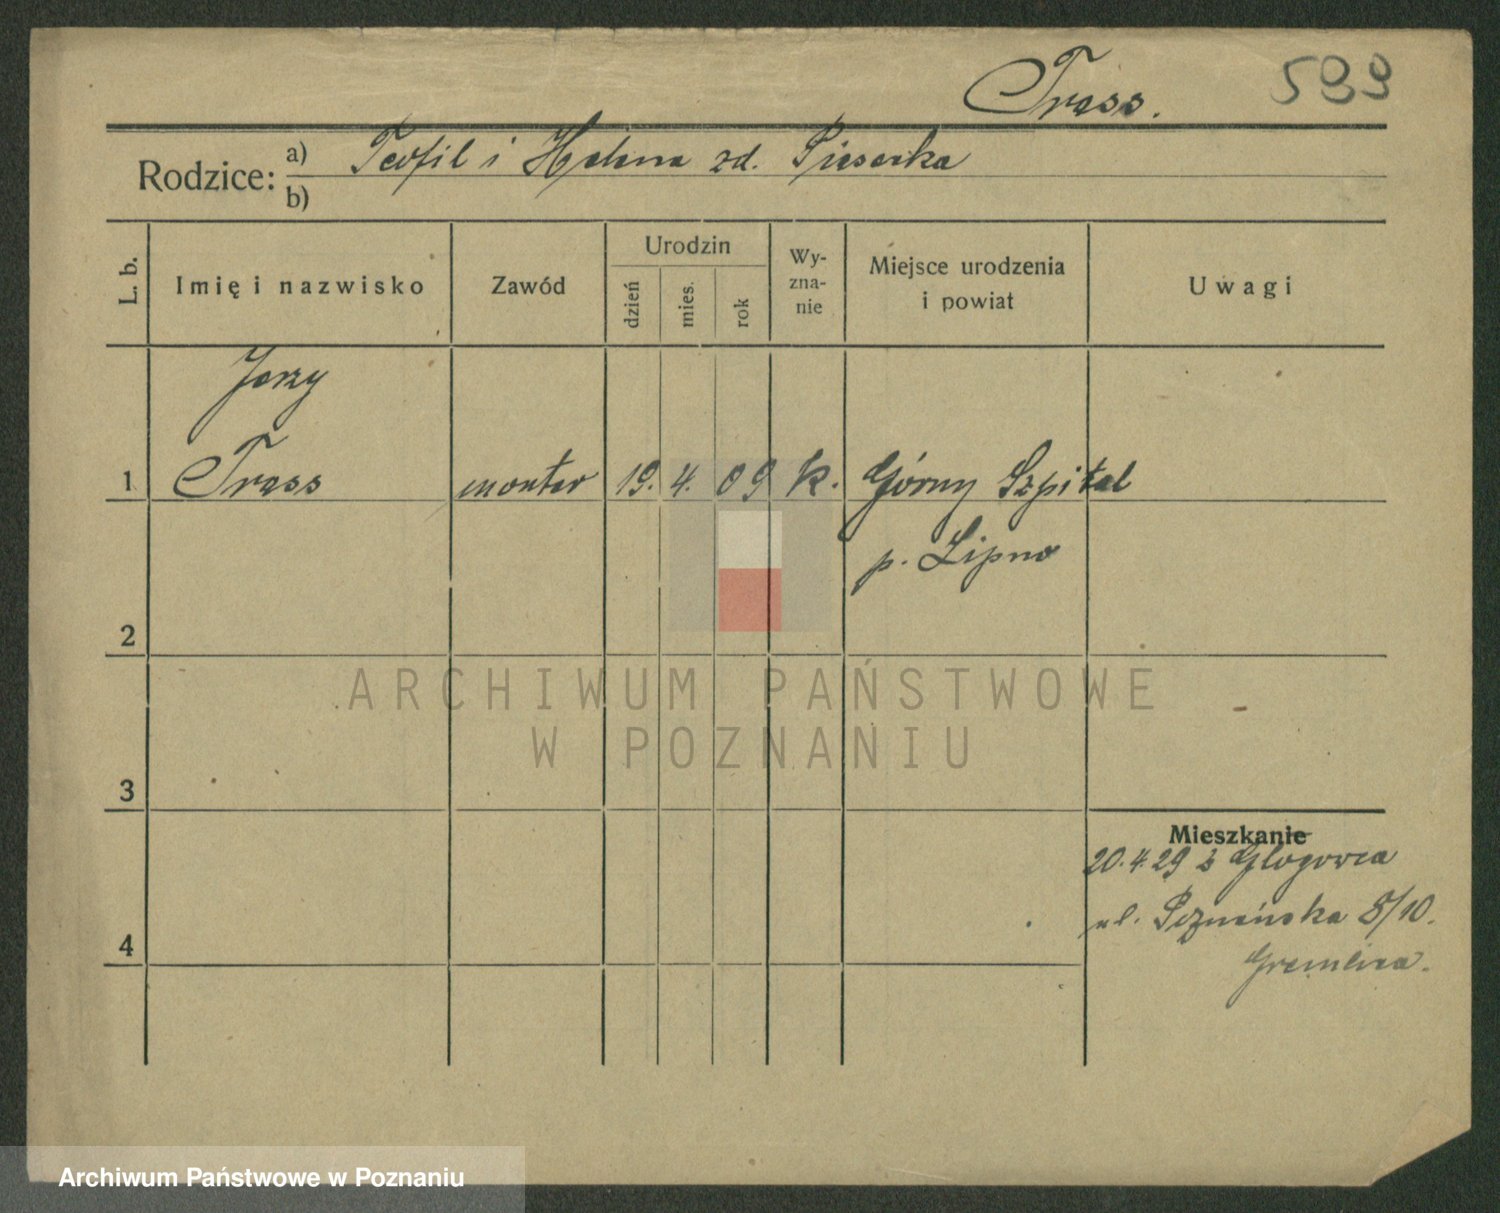 Tress.
599
Rodzice: a) Teofil i Helena zd. Piesecka
b)
L. b.
Imię i nazwisko
Zawód
Urodzin
dzień
mies.
rok
Wy-
zna-
nie
Miejsce urodzenia
i powiat
Uwagi
Jerzy
1 Tress monter 19. 4. 09 k. Górny Szpital
p. Lipno
2
3
4
Mieszkanie
20.4.29 z Głogowca
ul. Poznańska 8/10.
ARCHIWUM PAŃSTWOWE
W POZNANIU
Archiwum Państwowe w Poznaniu